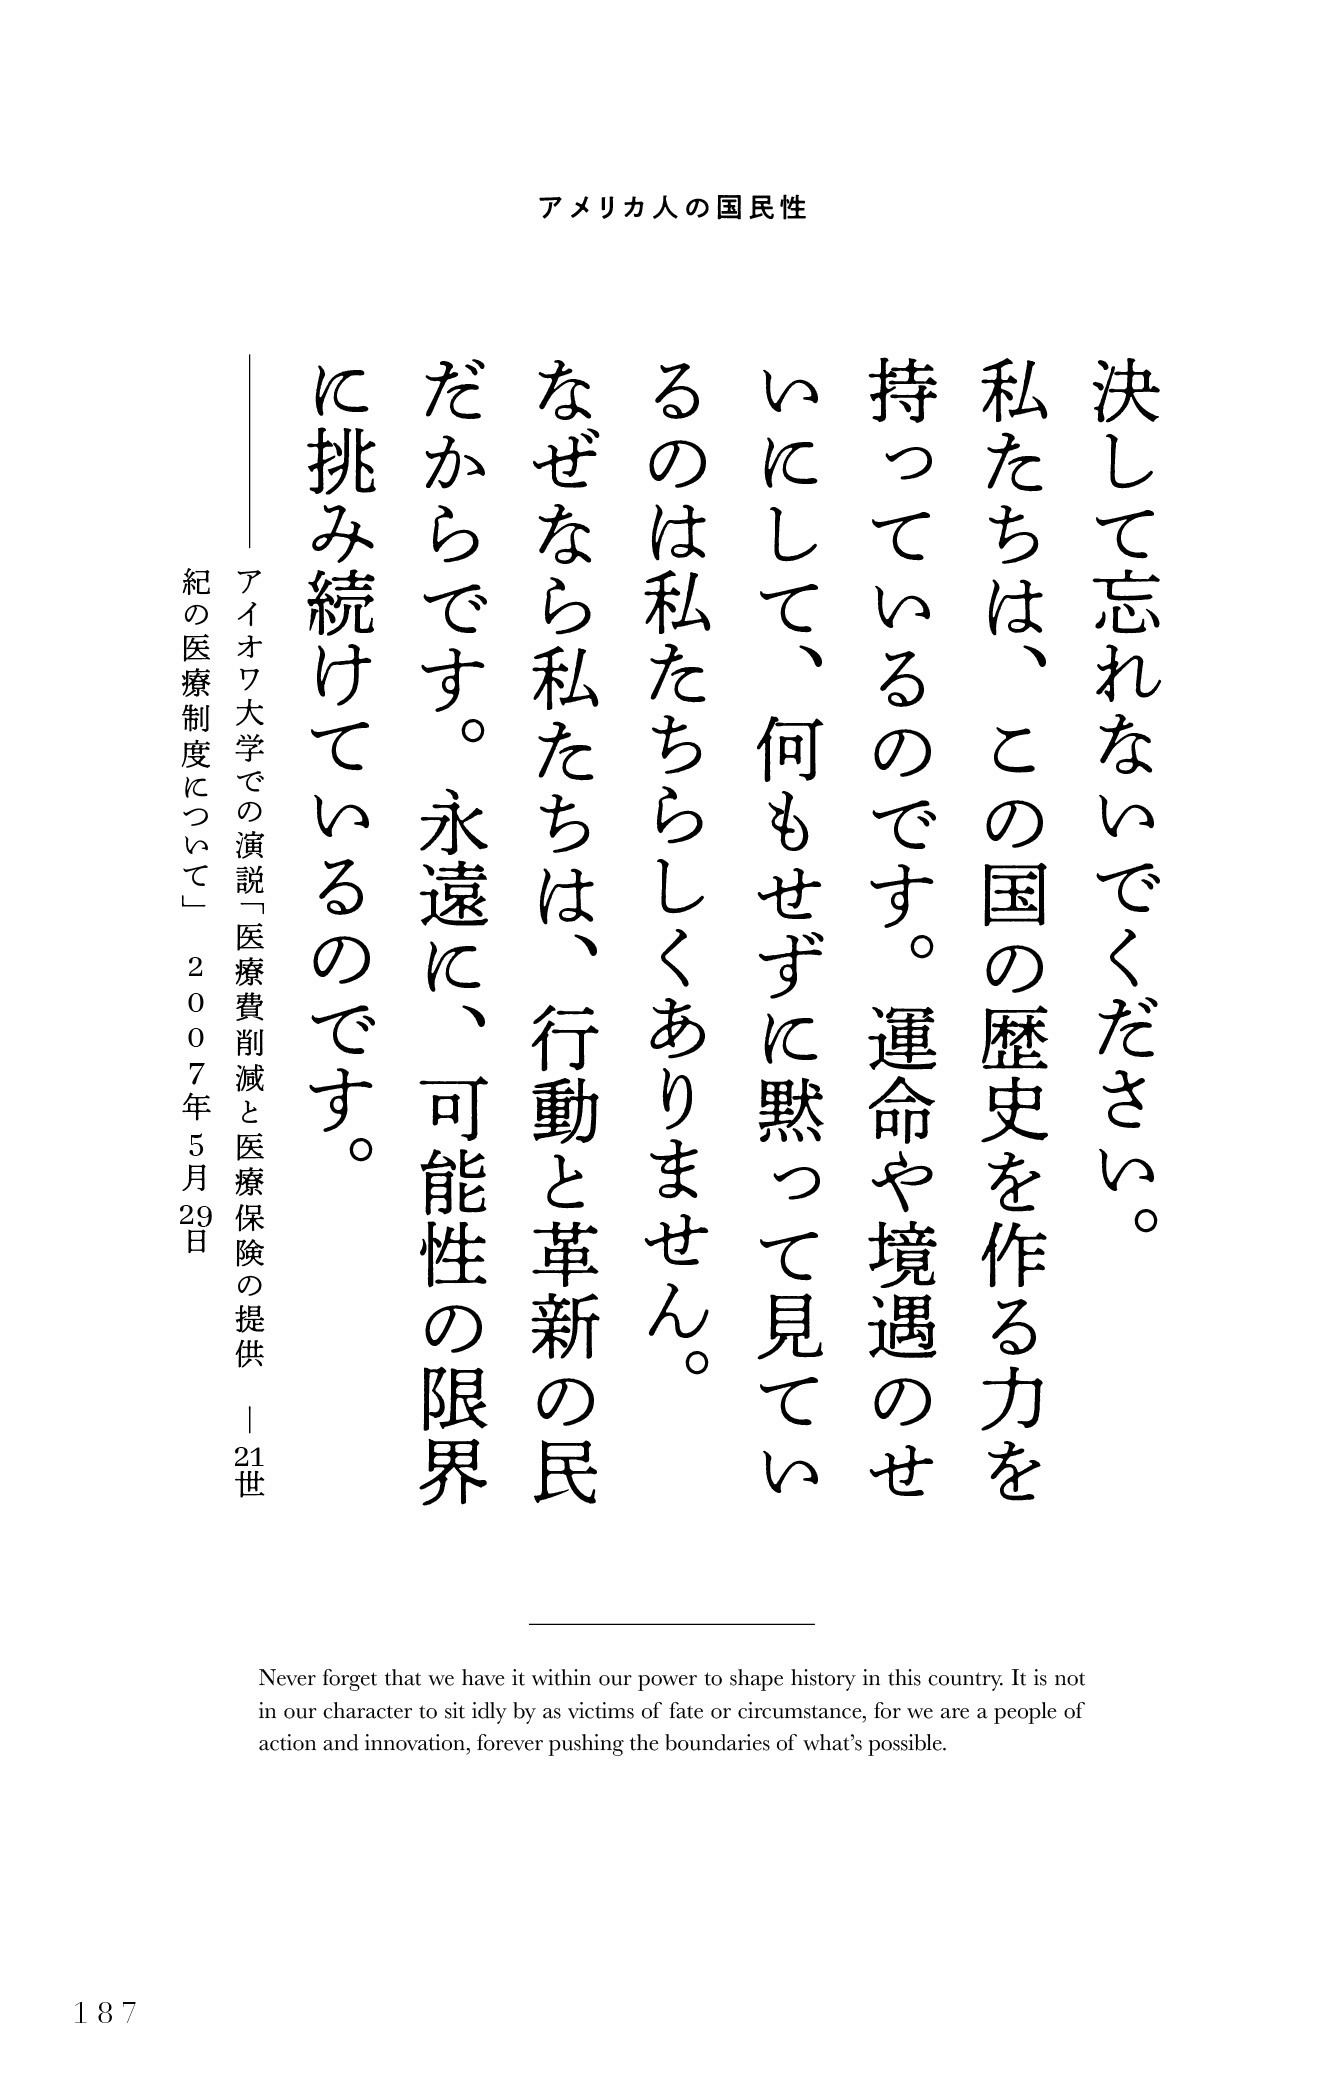 アメリカ人の国民性
決して忘れないでください。
私たちは、この国の歴史を作る力を
持っているのです。運命や境遇のせ
いにして、何もせずに黙って見てい
るのは私たちらしくありません。
なぜなら私たちは、行動と革新の民
だからです。永遠に、可能性の限界
に挑み続けているのです。
――アイオワ大学での演説「医療費削減と医療保険の提供 ―21世
紀の医療制度について」 2007年5月29日
Never forget that we have it within our power to shape history in this country. It is not
in our character to sit idly by as victims of fate or circumstance, for we are a people of
action and innovation, forever pushing the boundaries of what's possible.
187